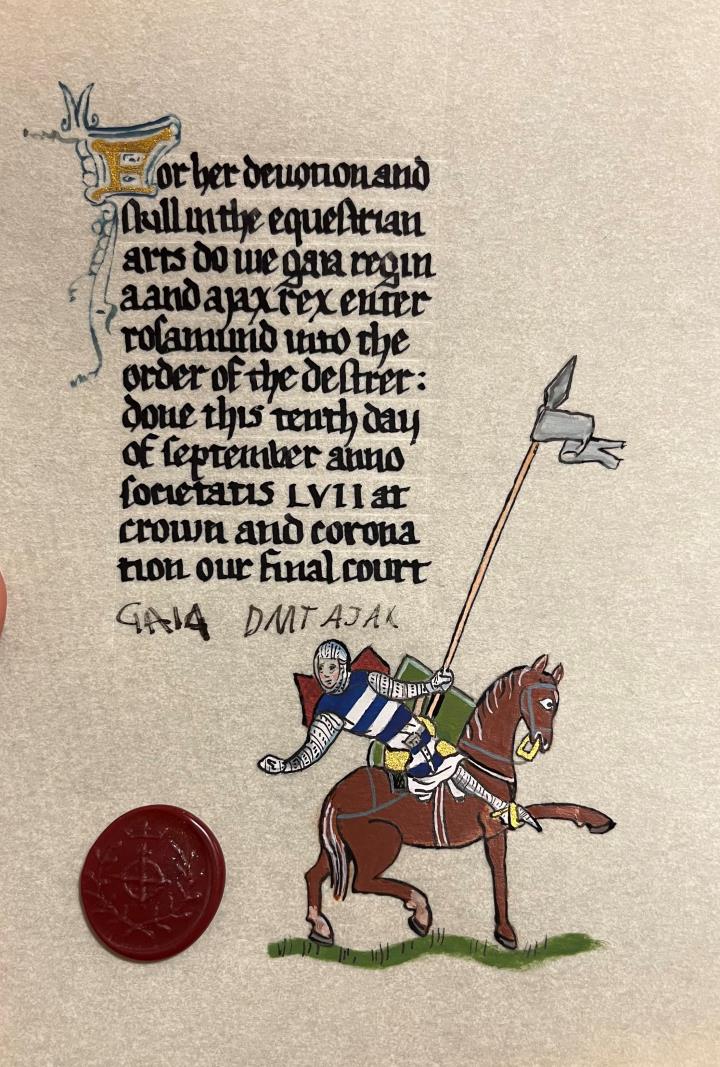 For her devotion and
skill in the equestrian
arts do we gaia regin
a and ajax rex enter
rosamund into the
order of the destrer:
done this tenth day
of september anno
societatis LVII at
crown and corona
tion our final court
GAIA DMT AJAX